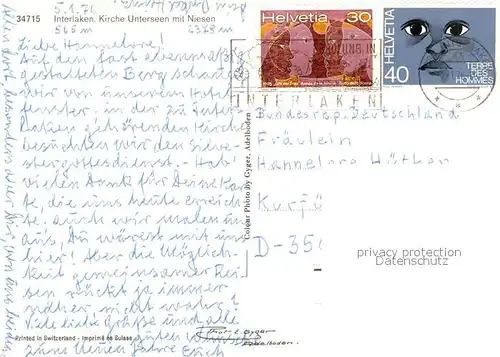 34715 Interlaken. Kirche Unterseen mit Niesen
5.1.76 565 m 2363 m
Liebe Hannelore!
Auf den fast ebenmäßig
gestalteten Berg schauen
wir von unserem Hotel-
fenster, in der zu Inter-
laken gehörenden Kirche
besuchten wir den Silve-
stergottesdienst. - Hab'
vielen Dank für Deine Kar-
te, die uns heute erreich-
te. Auch wir malen uns
aus, Du wärest mit uns
hier! Aber die Möglich-
keit gemeinsamer Rei-
sen rückt ja immer
näher, nicht wahr?
Viele liebe Grüße und alle
guten Wünsche
zum Neuen Jahre Erich
Printed in Switzerland - Imprimé en Suisse
Colour Photo by Gyger, Adelboden
Helvetia 30
HELVETIA
40
TERRE
DES
HOMMES
INTERLAKEN
Bundesrep. Deutschland
Fräulein
Hannelore
Kurfü
D-35
privacy protection
Datenschutz
Phot. E. Gyger
Adelboden.